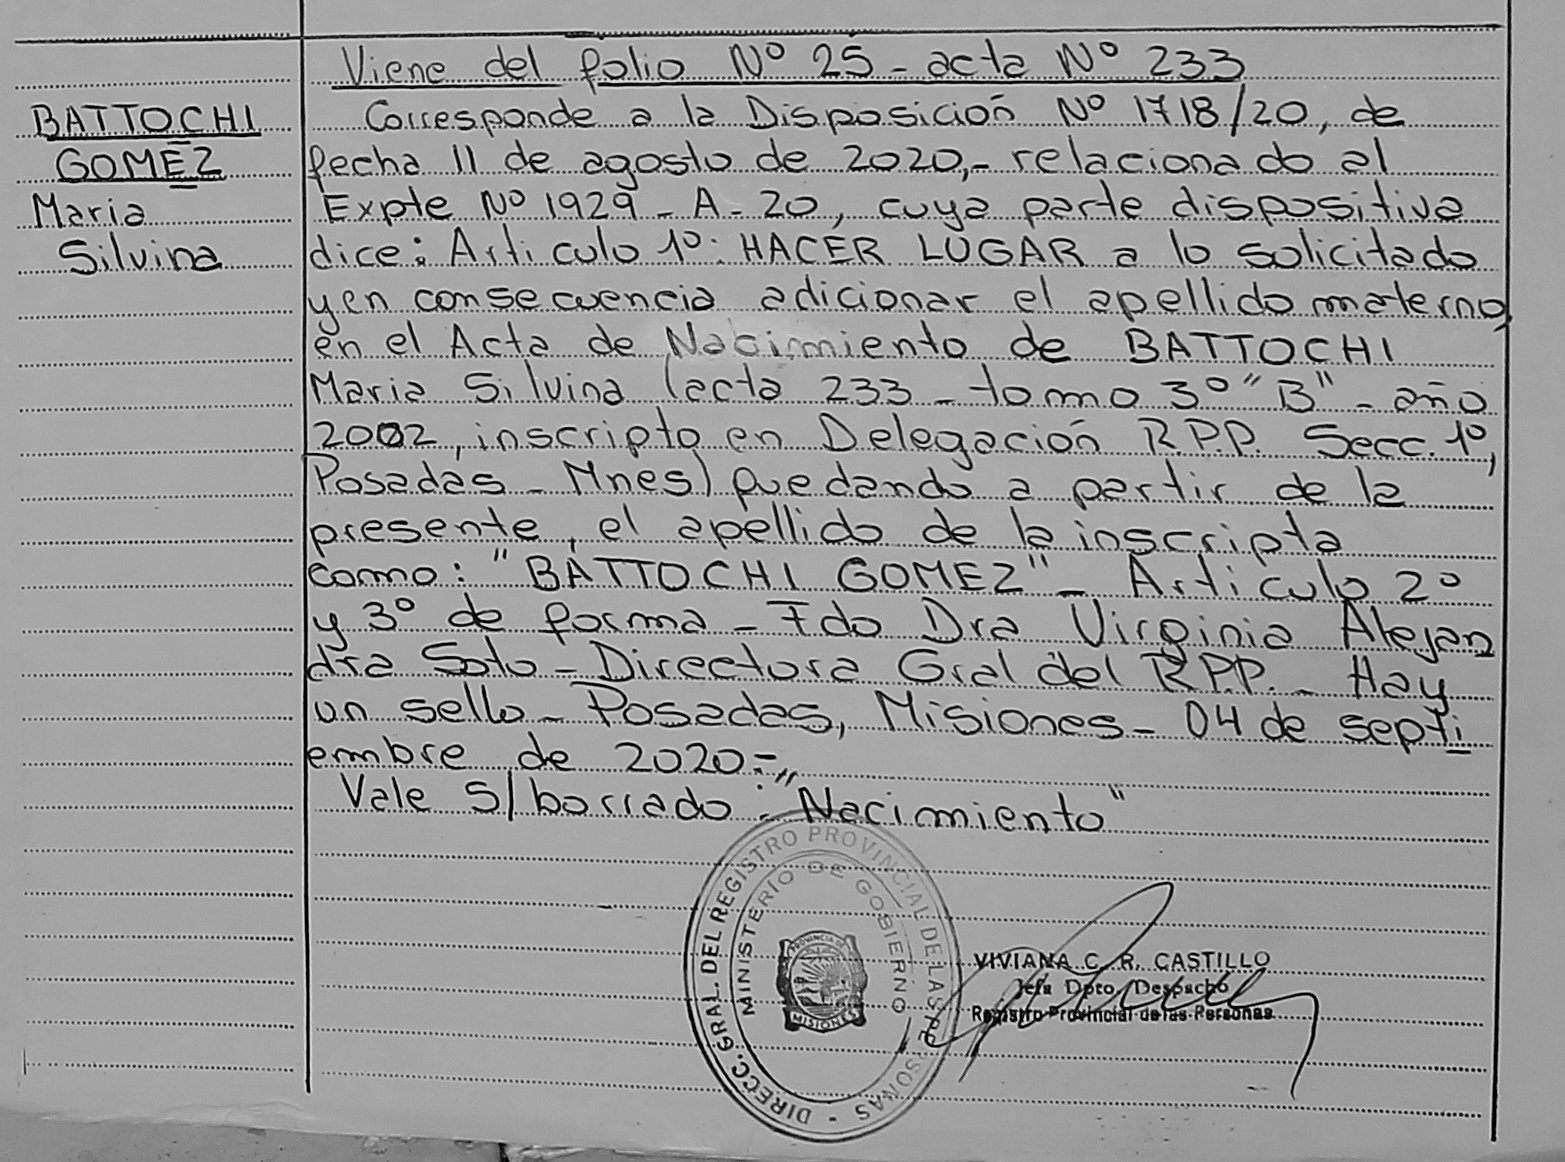 Viene del folio Nº 25 - acta Nº 233
BATTOCHI
GOMEZ
Maria
Silvina
Corresponde a la Disposición Nº 1718/20, de
fecha 11 de agosto de 2020,- relacionado al
Expte Nº 1929 - A - 20, cuya parte dispositiva
dice: Articulo 1º: HACER LUGAR a lo solicitado
y en consecuencia adicionar el apellido materno,
en el Acta de Nacimiento de BATTOCHI
Maria Silvina (acta 233 - tomo 3º "B" - año
2002, inscripto en Delegación R.P.P. Secc. 1º,
Posadas - Mnes) quedando a partir de la
presente, el apellido de la inscripta
como: "BATTOCHI GOMEZ" - Articulo 2º
y 3º de forma - Fdo Dra Virginia Alejan
dra Soto - Directora Gral del R.P.P. - Hay
un sello - Posadas, Misiones - 04 de septi
embre de 2020=,,
Vale S/borrado: "Nacimiento"
DIRECC. GRAL. DEL REGISTRO PROVINCIAL DE LAS PERSONAS -
MINISTERIO DE GOBIERNO
PROVINCIA DE
MISIONES
VIVIANA C. R. CASTILLO
Jefa Dpto. Despacho
Registro Provincial de las Personas